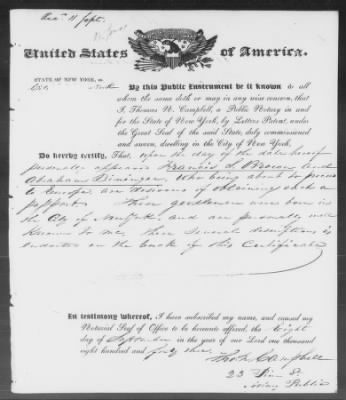 Rec. 11 Sept.
United States of America.
STATE OF NEW YORK, ss.
By this Public Instrument be it known to all
whom the same doth or may in any wise concern, that
I, Thomas N. Campbell, a Public Notary in and
for the State of New York, by Letters Patent, under
the Great Seal of the said State, duly commissioned
and sworn, dwelling in the City of New York,
Do hereby certify, That, upon the day of the date hereof
personally appeared Francis L. Brown and
Abraham Bininger, who being about to proceed
to Europe, are desirous of obtaining such a
passport. These gentlemen were born in
the City of New York and are personally well
known to me, their several descriptions is
endorsed on the back of this Certificate
In testimony whereof, I have subscribed my name, and caused my
Notarial Seal of Office to be hereunto affixed, the Eight
day of September in the year of our Lord one thousand
eight hundred and forty three
Tho N Campbell
23 Pine St
Notary Public